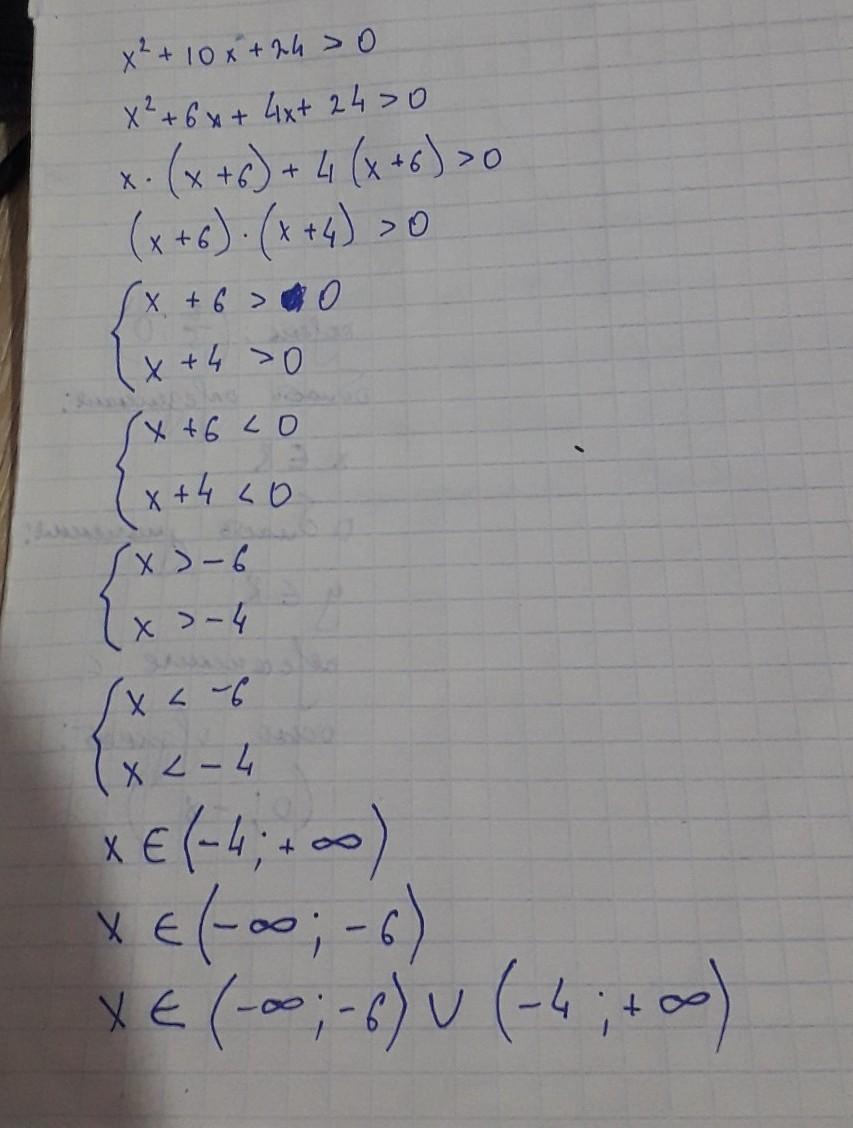 x² + 10x + 24 > 0
x² + 6x + 4x + 24 > 0
x · (x + 6) + 4 (x + 6) > 0
(x + 6) · (x + 4) > 0
{ x + 6 > 0
x + 4 > 0
{ x + 6 < 0
x + 4 < 0
{ x > - 6
x > - 4
{ x < - 6
x < - 4
x ∈ (- 4 ; + ∞)
x ∈ (- ∞ ; - 6)
x ∈ (- ∞ ; - 6) ∪ (- 4 ; + ∞)